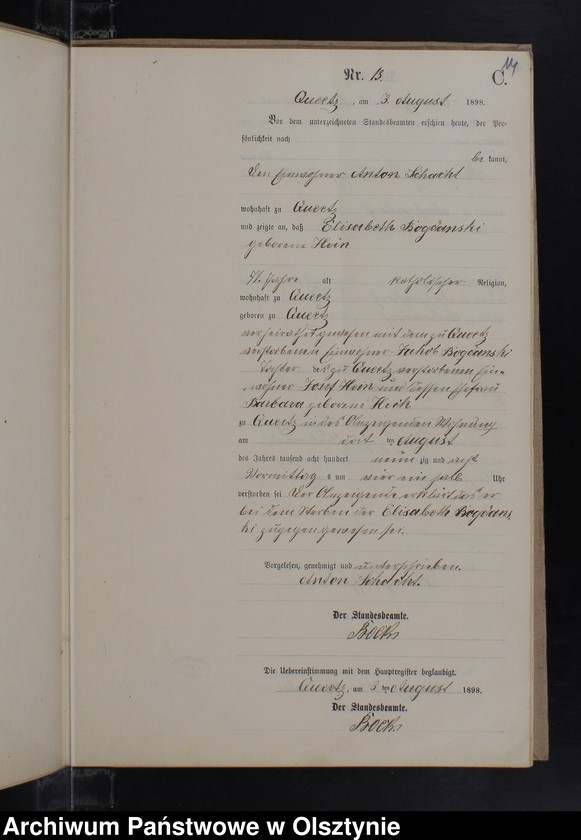 14
Nr. 13. C.
Queetz, am 3. August 1898.
Vor dem unterzeichneten Standesbeamten erschien heute, der Per-
sönlichkeit nach
be kannt,
den Einwohner Anton Schacht
wohnhaft zu Queetz
und zeigte an, daß Elisabeth Bogdanski
geborene Hein
Jahre alt katholischer Religion,
wohnhaft zu Queetz
geboren zu Queetz
verheirathet gewesen mit dem zu Queetz
verstorbenen Einwohner Jakob Bogdanski
Tochter des zu Queetz verstorbenen Ein-
wohner Josef Hein und dessen Ehefrau
Barbara geborene
zu Queetz in des Anzeigenden Wohnung
am August
des Jahres tausend acht hundert neun zig und acht
Vormittag s um vier ein halb Uhr
verstorben sei. Der Anzeigende erklärt das er
bei dem Sterben der Elisabeth Bogdans
ki zugegen gewesen sei.
Vorgelesen, genehmigt und unterschrieben.
Anton Schacht.
Der Standesbeamte.
Die Uebereinstimmung mit dem Hauptregister beglaubigt.
Queetz, am 3 ten August 1898.
Der Standesbeamte.
Archiwum Państwowe w Olsztynie